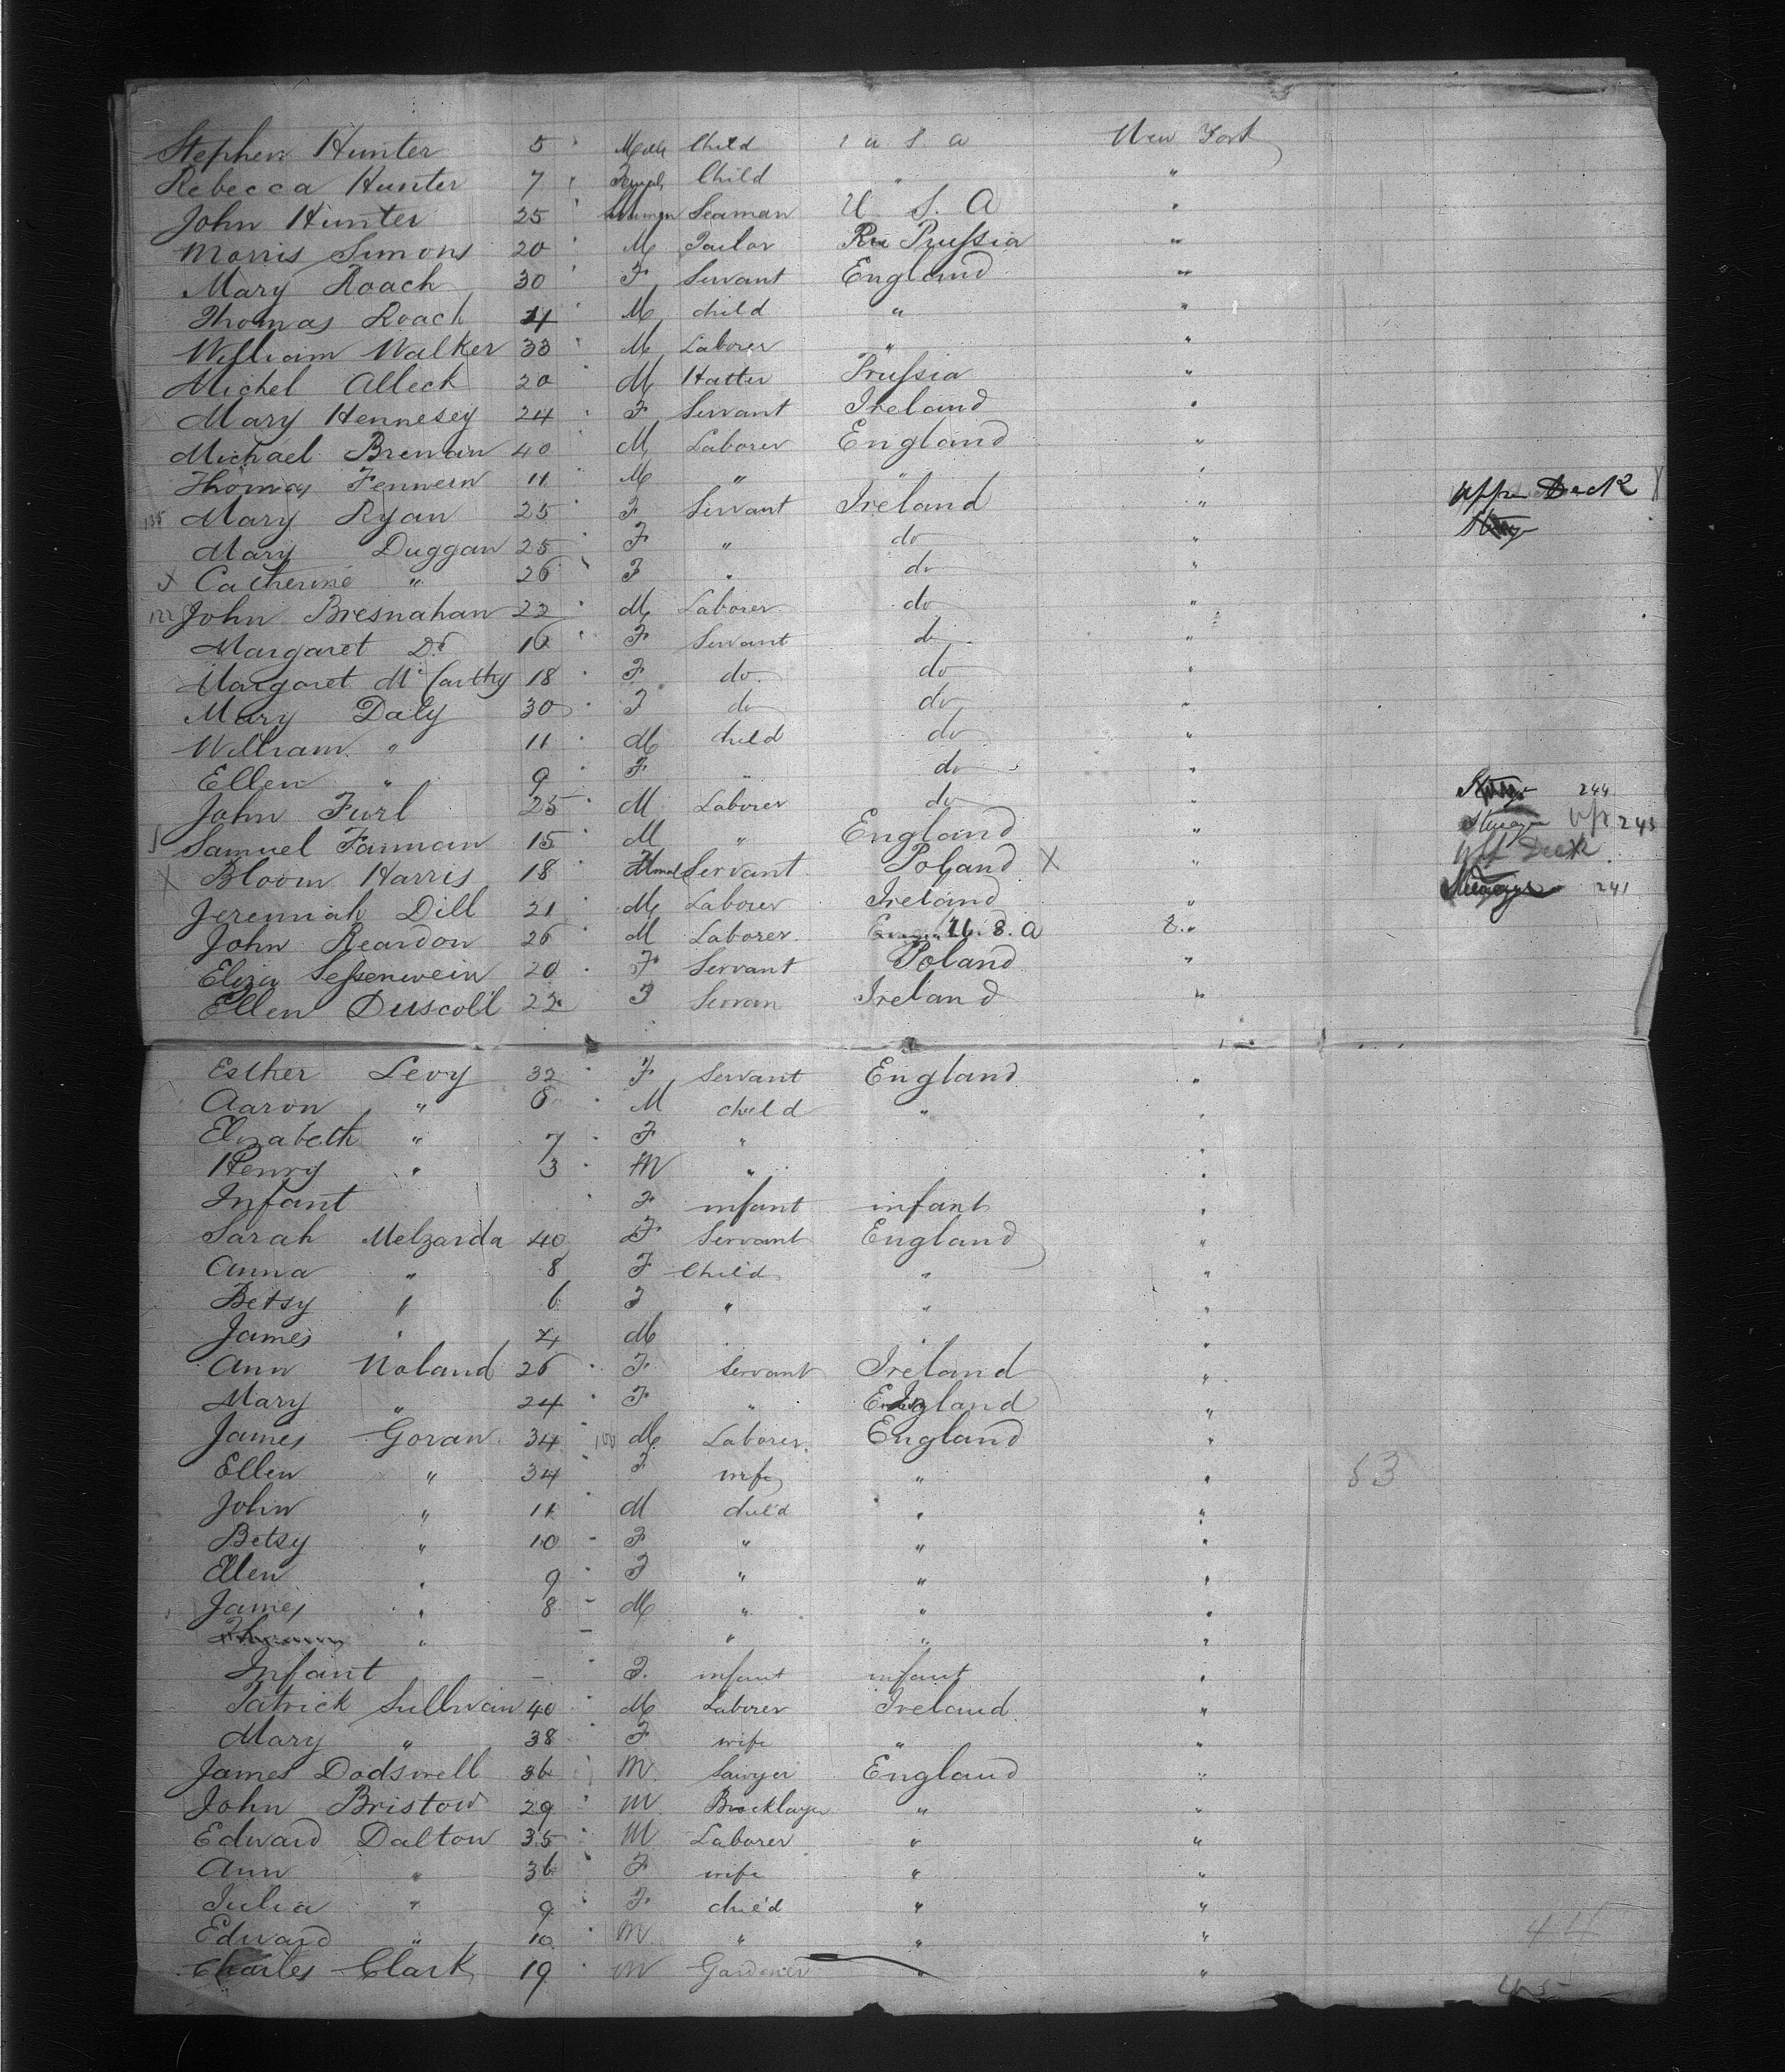 Stephen Hunter 5 " Male Child U S A New York
Rebecca Hunter 7 " Female Child " "
John Hunter 25 " Seaman U. S. A "
Morris Simons 20 " M Tailor Prussia "
Mary Roach 30 " F Servant England "
Thomas Roach 4 " M child " "
William Walker 33 " M Laborer " "
Michel Alleck 20 " M Hatter Prussia "
Mary Hennesey 24 " F Servant Ireland "
Michael Brennan 40 " M Laborer England "
Thomas 11 " M " " "
Mary Ryan 25 " F Servant Ireland " Upper Deck X
Mary Duggan 25 " F " do "
X Catherine " 26 " F " do "
John Bresnahan 22 " M Laborer do "
Margaret Do 16 " F Servant do "
Margaret McCarthy 18 " F do do "
Mary Daly 30 " F do do "
William " 11 " M child do "
Ellen " 9 " F " do "
John Furl 25 " M Laborer do " 244
Samuel Farman 15 " M " England " Steerage Up 243
X Bloom Harris 18 " Servant Poland X " Upp Deck
Jeremiah Dill 21 " M Laborer Ireland " 241
John Reardon 26 M Laborer U. S. A "
Eliza 20 " F Servant Poland "
Ellen Driscoll 22 F Servan Ireland "
Esther Levy 32 " F Servant England "
Aaron " 8 " M child " "
Elizabeth " 7 " F " "
Henry " 3 " M " "
Infant " F infant infant "
Sarah Melzarda 40 F Servant England "
Anna " 8 F Child " "
Betsy " 6 F " " "
James " 4 M " "
Ann Noland 26 " F Servant Ireland "
Mary " 24 " F " England "
James Goran 34 " M Laborer England "
Ellen " 34 " F wife " " 53
John " 11 " M child " "
Betsy " 10 - F " " "
Ellen " 9 " F " " "
James " 8 - M " " "
" - " " "
Infant - " F. infant infant "
Patrick Sullivan 40 " M Laborer Ireland "
Mary " 38 " F wife " "
James Dodswell 36 " M Sawyer England "
John Bristow 29 " M Bricklayer " "
Edward Dalton 35 " M Laborer " "
Ann " 36 " F wife " "
Julia " 9 " F child " "
Edward " 10 " M " " " 44
Charles Clark 19 " M Gardener " "
45